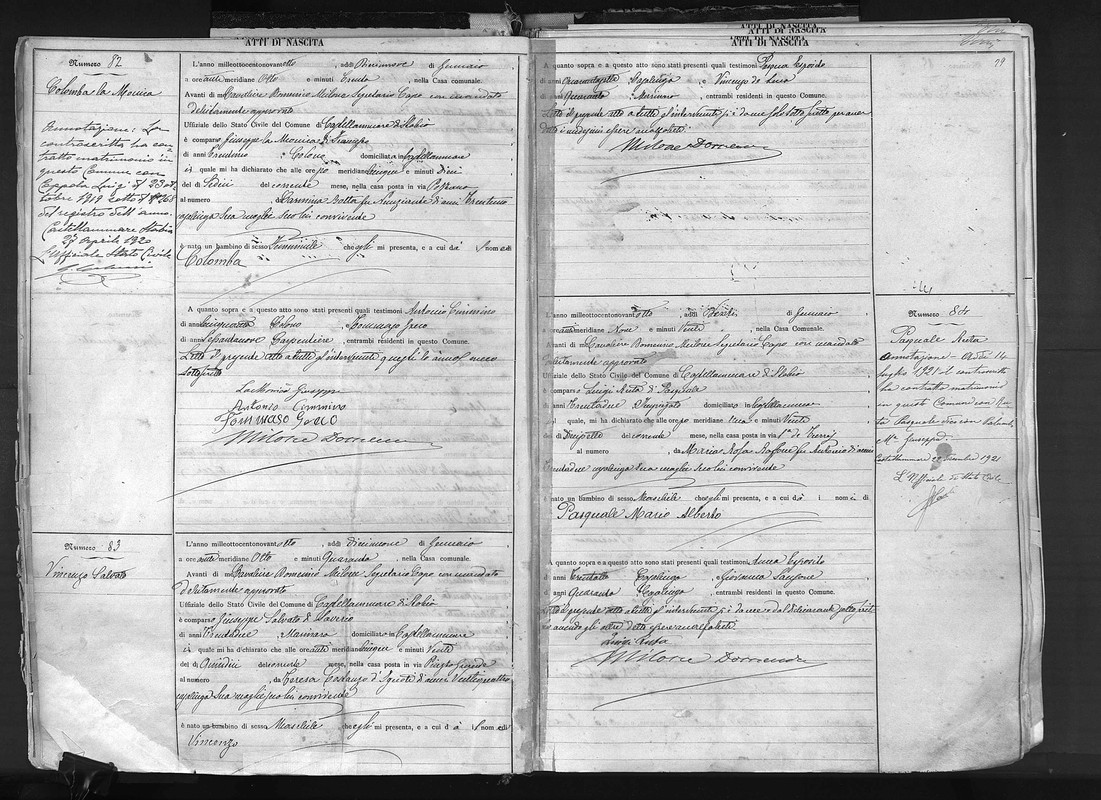 ATTI DI NASCITA
Numero 82
Colomba la Monica
Annotazione: La
controscritta ha con
tratto matrimonio in
questo Comune con
Coppola Luigi
tobre 1919
del registro dell'anno
Castellammare Stabia
27 Aprile 1920
L'Ufficiale Stato Civile
L'anno millottocentonovantotto, addì Diecinnove di Gennaio
a ore anti meridiane Otto e minuti Trenta, nella Casa comunale.
Avanti di me Cavaliere Domenico Milone Segretario Capo con mandato
debitamente approvato
Uffiziale dello Stato Civile del Comune di Castellammare di Stabia
è comparso Giuseppe la Monica di
di anni Colono domiciliato in Castellammare
il quale mi ha dichiarato che alle ore po meridiane Cinque e minuti Dieci
del dì Sedici del corrente mese, nella casa posta in via Pozzano
al numero , da Carmina Botta fu Nunziande di anni Trentuno
casalinga sua moglie seco lui convivente
è nato un bambino di sesso Femminile che egli mi presenta, e a cui dà il nome di
Colomba
A quanto sopra e a questo atto sono stati presenti quali testimoni Antonio Cimmino
di anni Cinquanta Colono, e Tommaso Greco
di anni Possidente, entrambi residenti in questo Comune.
Letto il presente atto a tutti gl'intervenuti questi lo anno meco
sottoscritto
La Monica Giuseppe
Antonio Cimmino
Tommaso Greco
Milone Domenico
Numero 83
Vincenzo Salvato
L'anno millottocentonovantotto, addì Diecinnove di Gennaio
a ore anti meridiane Otto e minuti Quaranta, nella Casa comunale.
Avanti di me Cavaliere Domenico Milone Segretario Capo con mandato
debitamente approvato
Uffiziale dello Stato Civile del Comune di Castellammare di Stabia
è comparso Giuseppe Salvato di Saverio
di anni Trentadue, Marinaro domiciliato in Castellammare
il quale mi ha dichiarato che alle ore anti meridiane Cinque e minuti Venti
del dì Quindici del corrente mese, nella casa posta in via
al numero , da Teresa Costanzo d'Ignoti di anni Ventiquattro
casalinga sua moglie seco lui convivente
è nato un bambino di sesso Maschile che egli mi presenta, e a cui dà il nome di
Vincenzo
ATTI DI NASCITA
ATTI DI NASCITA
ATTI DI NASCITA
29
A quanto sopra e a questo atto sono stati presenti quali testimoni Esposito
di anni Quarantasette Casalinga e Vincenzo de Luca
di anni Quaranta Marinaro, entrambi residenti in questo Comune.
Letto il presente atto a tutti gl'intervenuti si è da me solo sottoscritto per aver
detto i medesimi essere analfabeti
Milone Domenico
L'anno millottocentonovantotto, addì Venti di Gennaio
a ore anti meridiane Nove e minuti Venti, nella Casa Comunale.
Avanti di me Cavaliere Domenico Milone Segretario Capo con mandato
debitamente approvato
Uffiziale dello Stato Civile del Comune di Castellammare di Stabia
è comparso Luigi Auta di Pasquale
di anni Trentadue Impiegato domiciliato in Castellammare
il quale, mi ha dichiarato che alle ore po meridiane Una e minuti Venti
del dì Diciasette del corrente mese, nella casa posta in via
al numero , da Maria Rosa Raffone fu Antonio di anni
Trentadue casalinga sua moglie seco lui convivente
è nato un bambino di sesso Maschile che egli mi presenta, e a cui dà i nomi di
Pasquale Mario Alberto
A quanto sopra e a questo atto sono stati presenti quali testimoni Anna d'Esposito
di anni Trentotto Casalinga e Giovanna Sansone
di anni Quaranta Casalinga, entrambi residenti in questo Comune.
Letto il presente atto a tutti gl'intervenuti si è da me e dal dichiarante sottoscritto
avendo gli altri detto essere analfabeti
Luigi Auta
Milone Domenico
Numero 84
Pasquale Auta
Annotazione - Addì 14
luglio 1921 il controscritto
ha contratto matrimonio
in questo Comune con
Mª Giuseppa.
Castellammare 1921
L'Ufficiale di Stato Civile